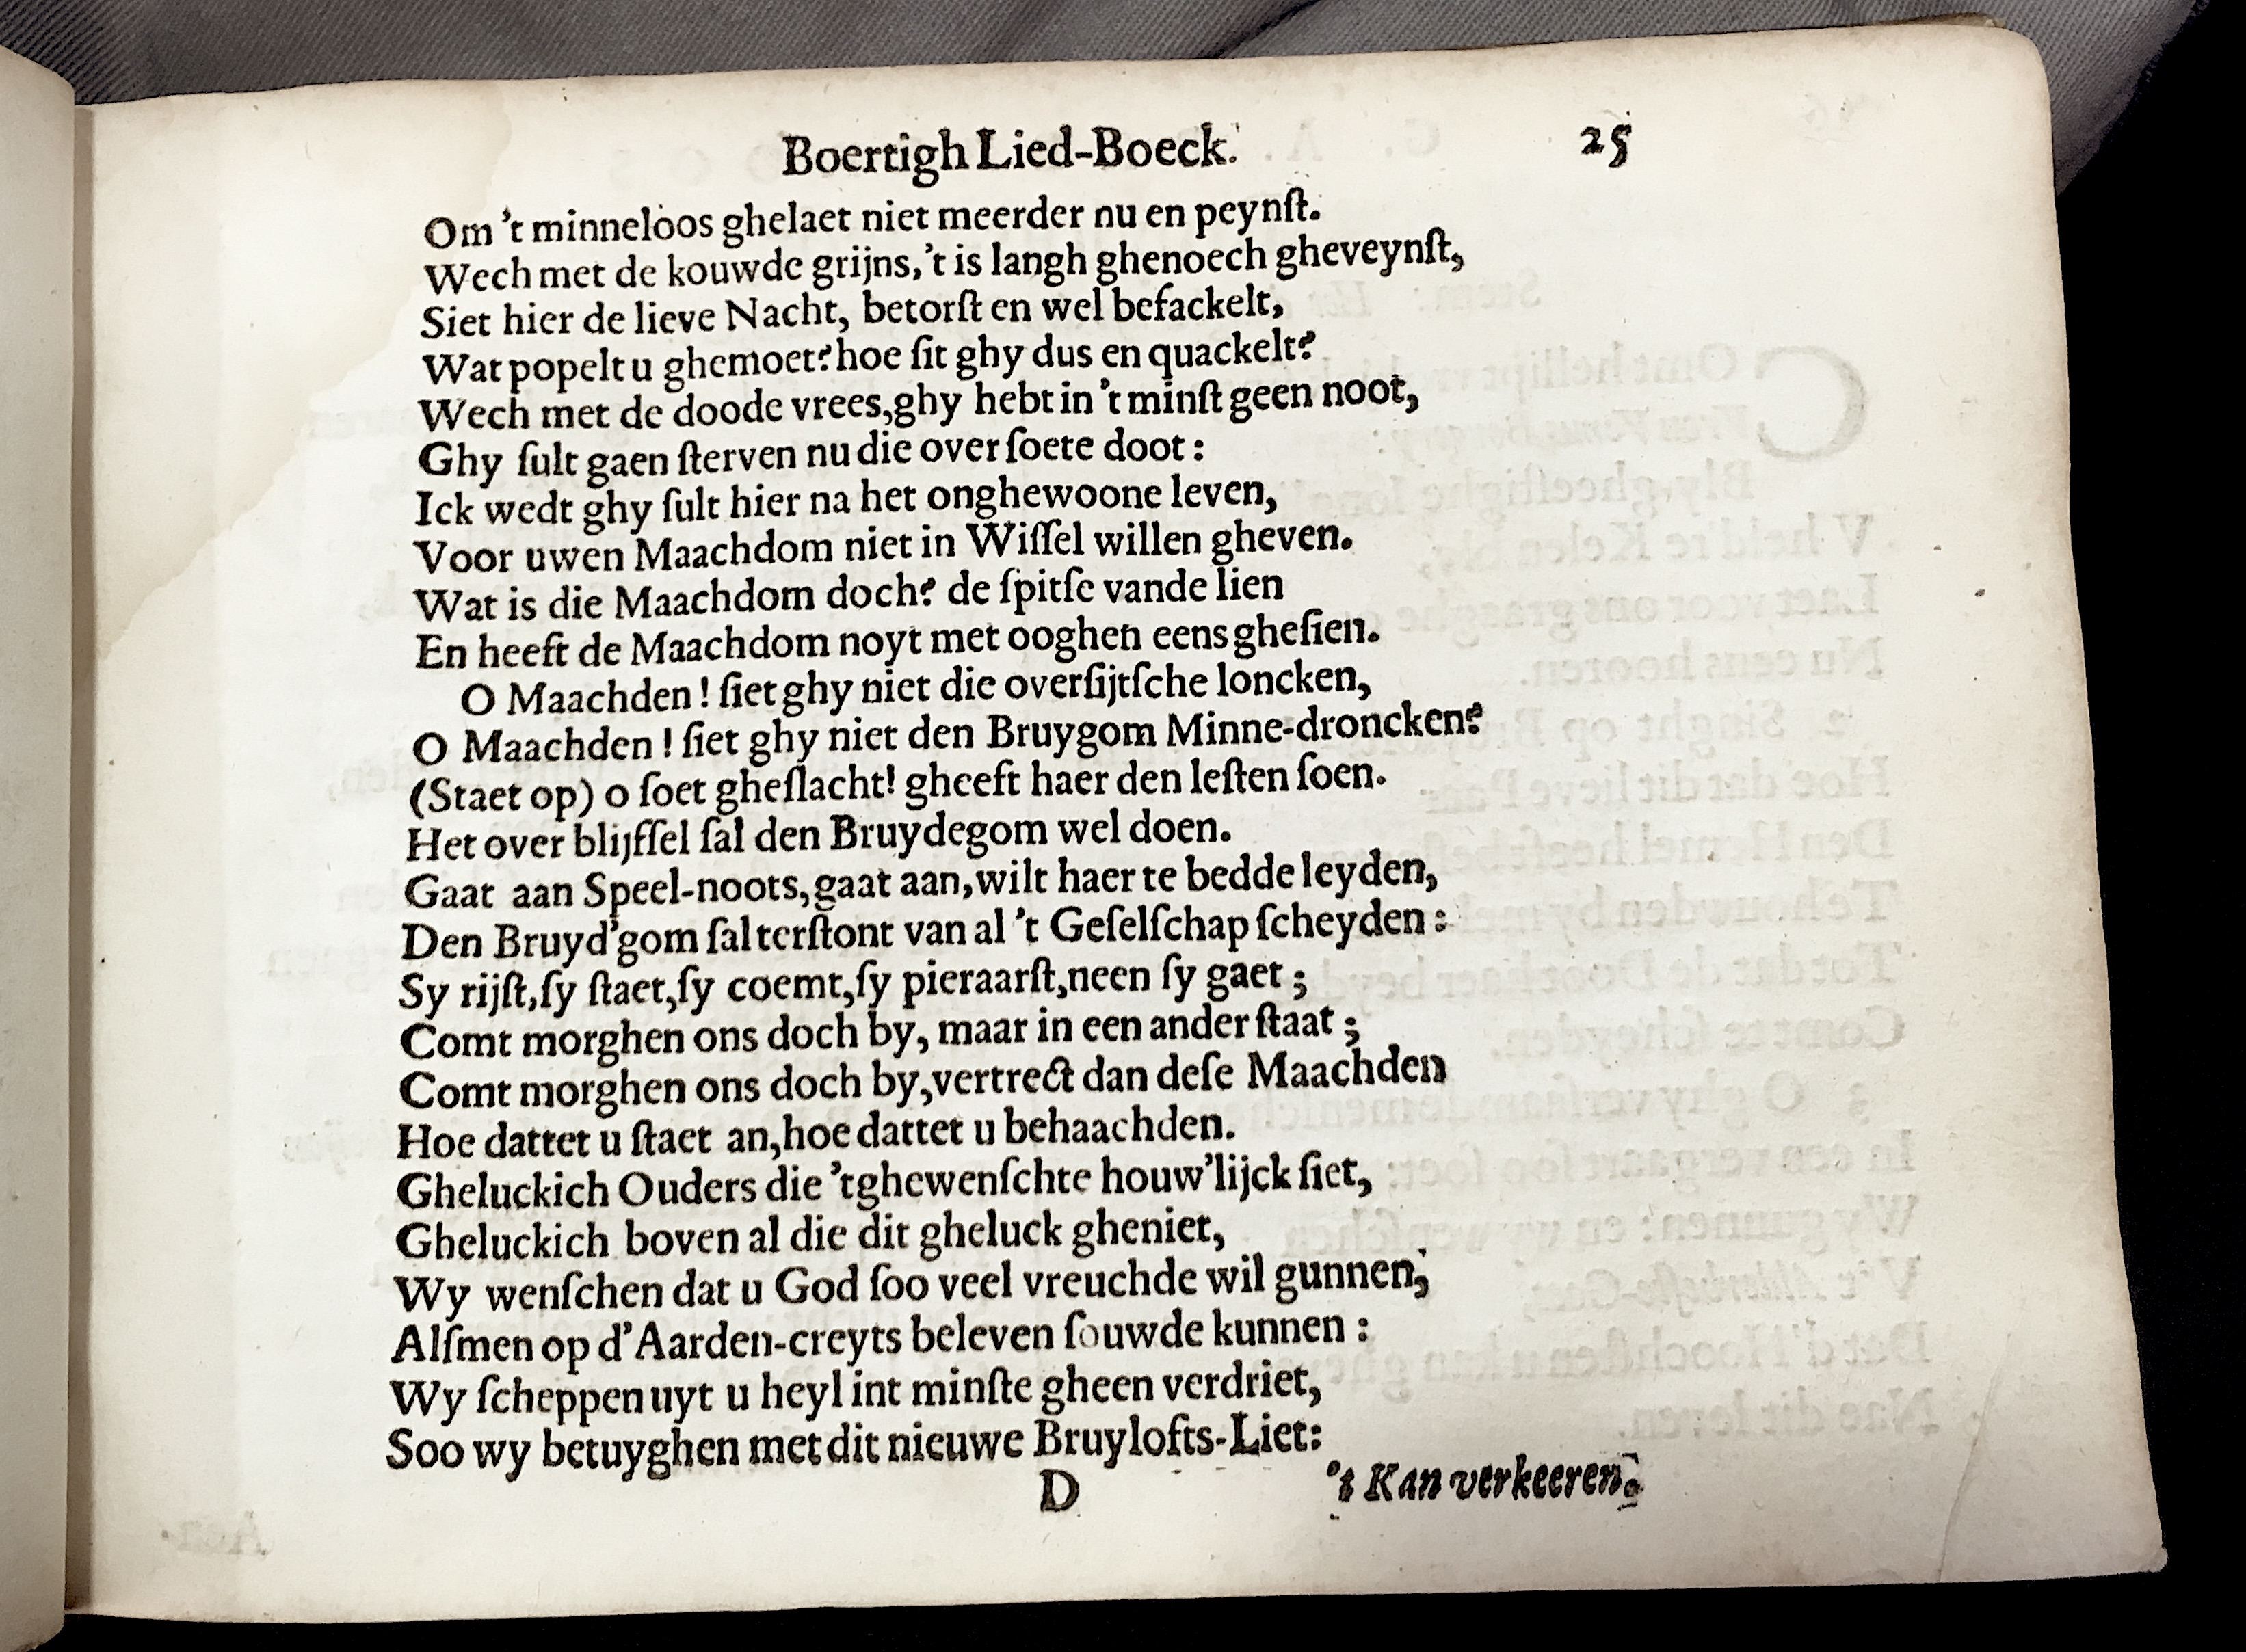 Boertigh Lied-Boeck. 25
Om 't minneloos ghelaet niet meerder nu en peynſt.
Wech met de kouwde grijns, 't is langh ghenoech gheveynſt,
Siet hier de lieve Nacht, betorſt en wel befackelt,
Wat popelt u ghemoet? hoe ſit ghy dus en quackelt?
Wech met de doode vrees, ghy hebt in 't minſt geen noot,
Ghy ſult gaen ſterven nu die over ſoete doot:
Ick wedt ghy ſult hier na het onghewoone leven,
Voor uwen Maachdom niet in Wiſſel willen gheven.
Wat is die Maachdom doch? de ſpitſe vande lien
En heeft de Maachdom noyt met ooghen eens gheſien.
O Maachden! ſiet ghy niet die overſijtſche loncken,
O Maachden! ſiet ghy niet den Bruygom Minne-droncken?
(Staet op) o ſoet gheſlacht! gheeft haer den leſten ſoen.
Het over blijfſel ſal den Bruydegom wel doen.
Gaat aan Speel-noots, gaat aan, wilt haer te bedde leyden,
Den Bruyd'gom ſal terſtont van al 't Geſelſchap ſcheyden:
Sy rijſt, ſy ſtaet, ſy coemt, ſy pieraarſt, neen ſy gaet;
Comt morghen ons doch by, maar in een ander ſtaat;
Comt morghen ons doch by, vertrect dan deſe Maachden
Hoe dattet u ſtaet an, hoe dattet u behaachden.
Gheluckich Ouders die 'tghewenſchte houw'lijck ſiet,
Gheluckich boven al die dit gheluck gheniet,
Wy wenſchen dat u God ſoo veel vreuchde wil gunnen;
Alſmen op d'Aarden-creyts beleven ſouwde kunnen:
Wy ſcheppen uyt u heyl int minſte gheen verdriet,
Soo wy betuyghen met dit nieuwe Bruylofts-Liet:
D 't Kan verkeeren.